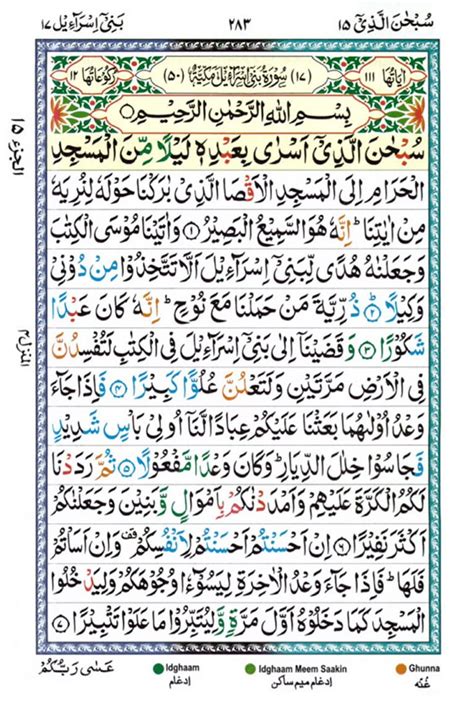 سُبْحٰنَ الَّذِیْۤ ۱۵ ۲۸۳ بَنِیْۤ اِسْرَآءِیْل ۱۷
اٰیَاتُهَا ۱۱۱ (۱۷) سُوْرَةُ بَنِیْۤ اِسْرَآءِیْلَ مَكِّیَّةٌ (۵۰) رُكُوْعَاتُهَا ۱۲
بِسْمِ اللّٰهِ الرَّحْمٰنِ الرَّحِیْمِ
سُبْحٰنَ الَّذِیْۤ اَسْرٰی بِعَبْدِهٖ لَیْلًا مِّنَ الْمَسْجِدِ
الْحَرَامِ اِلَی الْمَسْجِدِ الْاَقْصَا الَّذِیْ بٰرَكْنَا حَوْلَهٗ لِنُرِیَهٗ
مِنْ اٰیٰتِنَا ؕ اِنَّهٗ هُوَ السَّمِیْعُ الْبَصِیْرُ ﴿۱﴾ وَاٰتَیْنَا مُوْسَی الْكِتٰبَ
وَجَعَلْنٰهُ هُدًی لِّبَنِیْۤ اِسْرَآءِیْلَ اَلَّا تَتَّخِذُوْا مِنْ دُوْنِیْ
وَكِیْلًا ﴿۲﴾ ذُرِّیَّةَ مَنْ حَمَلْنَا مَعَ نُوْحٍ ؕ اِنَّهٗ كَانَ عَبْدًا
شَكُوْرًا ﴿۳﴾ وَقَضَیْنَاۤ اِلٰی بَنِیْۤ اِسْرَآءِیْلَ فِی الْكِتٰبِ لَتُفْسِدُنَّ
فِی الْاَرْضِ مَرَّتَیْنِ وَلَتَعْلُنَّ عُلُوًّا كَبِیْرًا ﴿۴﴾ فَاِذَا جَآءَ
وَعْدُ اُوْلٰىهُمَا بَعَثْنَا عَلَیْكُمْ عِبَادًا لَّنَاۤ اُولِیْ بَاْسٍ شَدِیْدٍ
فَجَاسُوْا خِلٰلَ الدِّیَارِ ؕ وَكَانَ وَعْدًا مَّفْعُوْلًا ﴿۵﴾ ثُمَّ رَدَدْنَا
لَكُمُ الْكَرَّةَ عَلَیْهِمْ وَاَمْدَدْنٰكُمْ بِاَمْوَالٍ وَّبَنِیْنَ وَجَعَلْنٰكُمْ
اَكْثَرَ نَفِیْرًا ﴿۶﴾ اِنْ اَحْسَنْتُمْ اَحْسَنْتُمْ لِاَنْفُسِكُمْ ۫ وَاِنْ اَسَاْتُمْ
فَلَهَا ؕ فَاِذَا جَآءَ وَعْدُ الْاٰخِرَةِ لِیَسُوْٓءٗا وُجُوْهَكُمْ وَلِیَدْخُلُوا
الْمَسْجِدَ كَمَا دَخَلُوْهُ اَوَّلَ مَرَّةٍ وَّلِیُتَبِّرُوْا مَا عَلَوْا تَتْبِیْرًا ﴿۷﴾
الجزء ۱۵
المنزل ۴
عَسٰی رَبُّكُمْ
Idghaam
اِدغام
Idghaam Meem Saakin
اِدغام میم ساکن
Ghunna
غُنّه